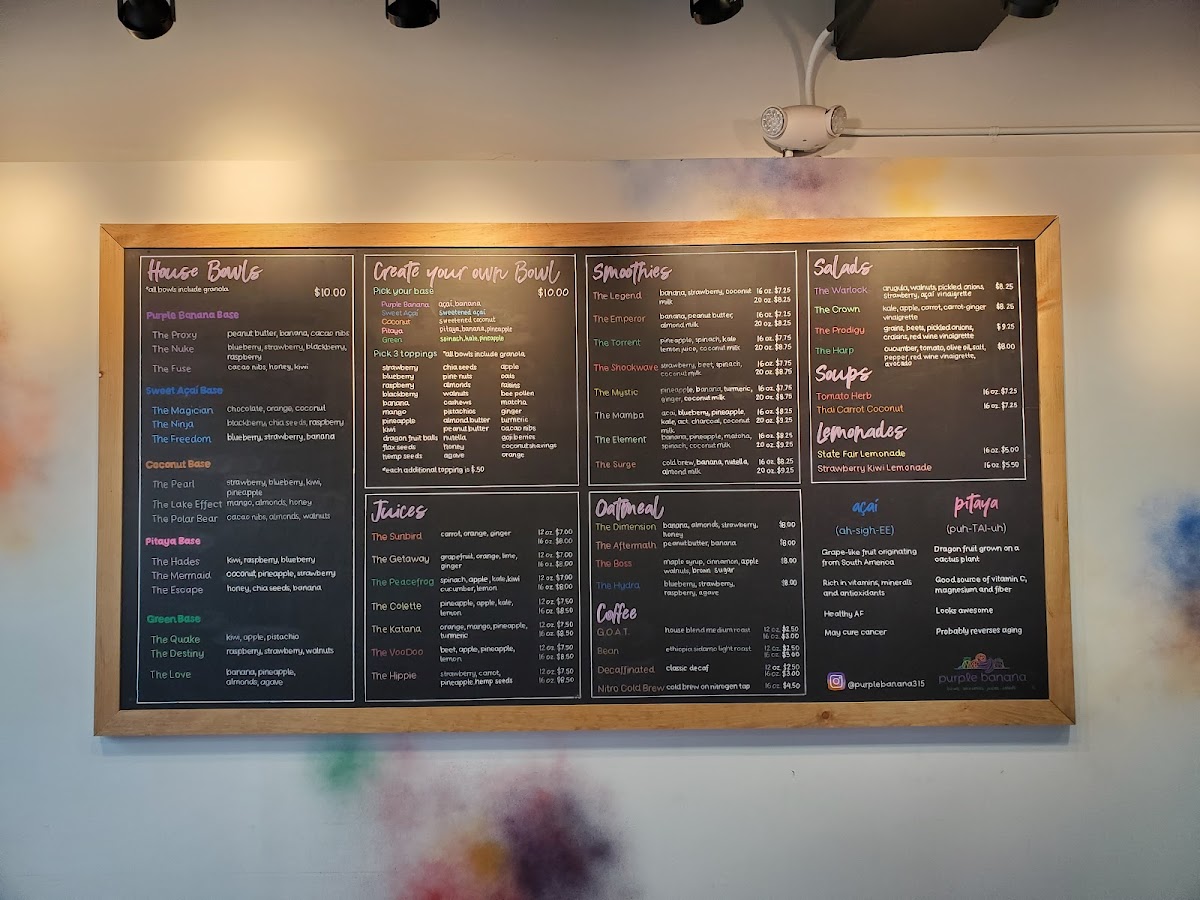 House Bowls
*all bowls include granola
$10.00
Purple Banana Base
The Proxy peanut butter, banana, cacao nibs
The Nuke blueberry, strawberry, blackberry,
raspberry
The Fuse cacao nibs, honey, kiwi
Sweet Açaí Base
The Magician Chocolate, orange, coconut
The Ninja blackberry, chia seeds, raspberry
The Freedom blueberry, strawberry, banana
Coconut Base
The Pearl strawberry, blueberry, kiwi,
pineapple
The Lake Effect mango, almonds, honey
The Polar Bear cacao nibs, almonds, walnuts
Pitaya Base
The Hades kiwi, raspberry, blueberry
The Mermaid coconut, pineapple, strawberry
The Escape honey, chia seeds, banana
Green Base
The Quake kiwi, apple, pistachio
The Destiny raspberry, strawberry, walnuts
The Love banana, pineapple,
almonds, agave
Create your own Bowl
Pick your base $10.00
Purple Banana açaí, banana
Sweet Açaí Sweetened açaí
Coconut sweetened coconut
Pitaya pitaya, banana, pineapple
Green spinach, kale, pineapple
Pick 3 toppings *all bowls include granola
strawberry chia seeds apple
blueberry pine nuts oats
raspberry almonds raisins
blackberry walnuts bee pollen
banana cashews matcha
mango pistachios ginger
pineapple almond butter turmeric
kiwi peanut butter cacao nibs
dragon fruit balls nutella goji berries
flax seeds honey coconut shavings
hemp seeds agave orange
*each additional topping is $.50
Juices
The Sunbird carrot, orange, ginger 12 oz. $7.00
16 oz. $8.00
The Getaway grapefruit, orange, lime, 12 oz. $7.00
ginger 16 oz. $8.00
The Peacefrog spinach, apple, kale, kiwi 12 oz. $7.00
cucumber, lemon 16 oz. $8.00
The Colette pineapple, apple, kale, 12 oz. $7.50
lemon 16 oz. $8.50
The Katana orange, mango, pineapple, 12 oz. $7.50
turmeric 16 oz. $8.50
The VooDoo beet, apple, pineapple, 12 oz. $7.50
lemon 16 oz. $8.50
The Hippie strawberry, carrot, 12 oz. $7.50
pineapple, hemp seeds 16 oz. $8.50
Smoothies
The Legend banana, strawberry, coconut 16 oz. $7.25
milk 20 oz. $8.25
The Emperor banana, peanut butter, 16 oz. $7.25
almond milk 20 oz. $8.25
The Torrent pineapple, spinach, kale 16 oz. $7.75
lemon juice, coconut milk 20 oz. $8.75
The Shockwave strawberry, beet, spinach, 16 oz. $7.75
coconut milk 20 oz. $8.75
The Mystic pineapple, banana, turmeric, 16 oz. $7.75
ginger, coconut milk 20 oz. $8.75
The Mamba acai, blueberry, pineapple, 16 oz. $8.25
kale, act. charcoal, coconut 20 oz. $9.25
milk
The Element banana, pineapple, matcha, 16 oz. $8.25
spinach, coconut milk 20 oz. $9.25
The Surge cold brew, banana, nutella, 16 oz. $8.25
almond milk 20 oz. $9.25
Oatmeal
The Dimension banana, almonds, strawberry, $8.00
honey
The Aftermath peanut butter, banana $8.00
The Boss maple syrup, cinnamon, apple $8.00
walnuts, brown sugar
The Hydra blueberry, strawberry, $8.00
raspberry, agave
Coffee
G.O.A.T. house blend medium roast 12 oz. $2.50
16 oz. $3.00
Bean ethiopia sidamo light roast 12 oz. $2.50
16 oz. $3.00
Decaffinated classic decaf 12 oz. $2.50
16 oz. $3.00
Nitro Cold Brew cold brew on nitrogen tap 16 oz. $4.50
Salads
The Warlock arugula, walnuts, pickled onions, $8.25
strawberry, açaí vinaigrette
The Crown kale, apple, carrot, carrot-ginger $8.25
vinaigrette
The Prodigy grains, beets, pickled onions, $9.25
craisins, red wine vinaigrette
The Harp cucumber, tomato, olive oil, salt, $8.00
pepper, red wine vinaigrette,
avocado
Soups
Tomato Herb 16 oz. $7.25
Thai Carrot Coconut 16 oz. $7.25
Lemonades
State Fair Lemonade 16 oz. $5.00
Strawberry Kiwi Lemonade 16 oz. $5.50
açaí
(ah-sigh-EE)
Grape-like fruit originating
from South America
Rich in vitamins, minerals
and antioxidants
Healthy AF
May cure cancer
pitaya
(puh-TAI-uh)
Dragon fruit grown on a
cactus plant
Good source of vitamin C,
magnesium and fiber
Looks awesome
Probably reverses aging
@purplebanana315
purple banana